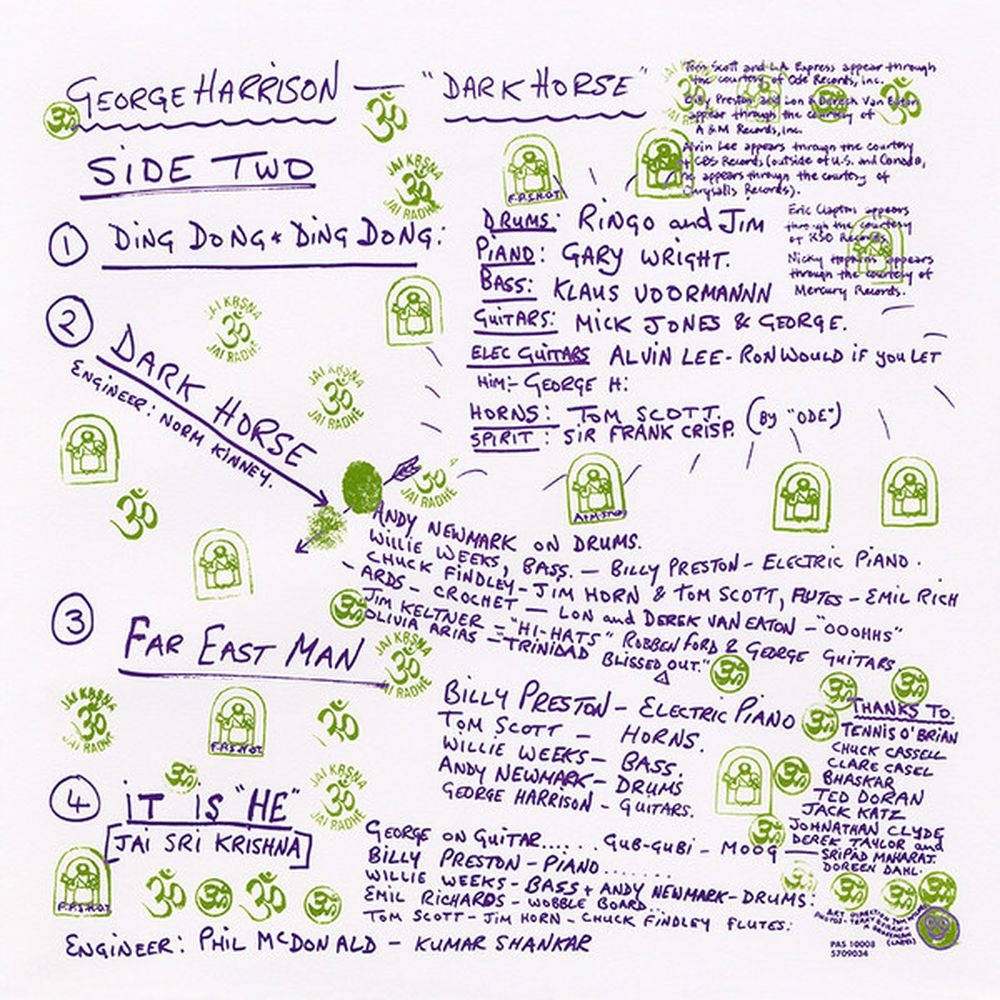 GEORGE HARRISON — "DARK HORSE"
Tom Scott and L.A. Express appear through
the courtesy of Ode Records, Inc.
Billy Preston and Lon & Derrek Van Eaton
appear through the courtesy of
A & M Records, Inc.
Alvin Lee appears through the courtesy
of CBS Records (outside of U.S. and Canada,
he appears through the courtesy of
Chrysalis Records).
Eric Clapton appears
through the courtesy
of RSO Records.
Nicky Hopkins appears
through the courtesy of
Mercury Records.
SIDE TWO
① DING DONG * DING DONG:
DRUMS: RINGO and JIM
PIANO: GARY WRIGHT.
BASS: KLAUS VOORMANNN
GUITARS: MICK JONES & GEORGE.
ELEC GUITARS ALVIN LEE - RON WOULD IF YOU LET
HIM:- GEORGE H:
HORNS: TOM SCOTT. (BY "ODE")
SPIRIT: SIR FRANK CRISP.
② DARK HORSE
ENGINEER: NORM KINNEY.
ANDY NEWMARK ON DRUMS.
WILLIE WEEKS, BASS. — BILLY PRESTON - ELECTRIC PIANO.
CHUCK FINDLEY - JIM HORN & TOM SCOTT, FLUTES - EMIL RICH
- ARDS - CROCHET — LON and DEREK VAN EATON - "OOOHHS"
JIM KELTNER - "HI-HATS" ROBBEN FORD & GEORGE GUITARS
OLIVIA ARIAS - "TRINIDAD BLISSED OUT."
③ FAR EAST MAN
BILLY PRESTON - ELECTRIC PIANO
TOM SCOTT — HORNS.
WILLIE WEEKS - BASS.
ANDY NEWMARK - DRUMS
GEORGE HARRISON - GUITARS.
④ IT IS "HE"
JAI SRI KRISHNA
GEORGE ON GUITAR........ GUB-GUBI - MOOG
BILLY PRESTON - PIANO........
WILLIE WEEKS - BASS + ANDY NEWMARK - DRUMS:
EMIL RICHARDS - WOBBLE BOARD..
TOM SCOTT - JIM HORN - CHUCK FINDLEY FLUTES:
THANKS TO.
TENNIS O'BRIAN
CHUCK CASSELL
CLARE CASEL
BHASKAR
TED DORAN
JACK KATZ
JOHNATHAN CLYDE
DEREK TAYLOR and
SRIPAD MAHARAT.
DOREEN DAHL.
ENGINEER: PHIL McDONALD - KUMAR SHANKAR
ART DIRECTION TOM
PHOTOS - TERRY
(LABEL)
PAS 10008
5709034
JAI KRSNA
ॐ
JAI RADHE
JAI KRSNA
ॐ
JAI RADHE
JAI KRSNA
ॐ
JAI RADHE
ॐ
JAI RADHE
JAI KRSNA
ॐ
JAI RADHE
JAI KRSNA
ॐ
JAI RADHE
JAI KRSNA
ॐ
JAI RADHE
F.P.S.H.O.T.
A+M STUDIO
F.P.S.H.O.T.
F.P.S.H.O.T.